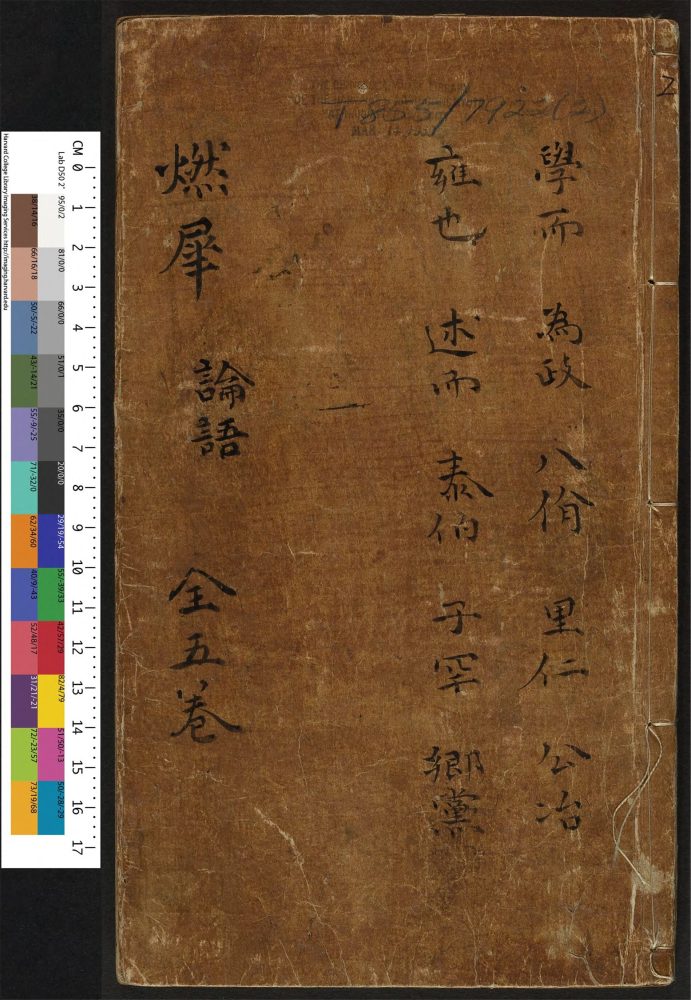 2
T 855/7922(2)
學而 為政 八佾 里仁 公冶
雍也 述而 泰伯 子罕 鄉黨
燃犀 論語 全五卷
CM 0 1 2 3 4 5 6 7 8 9 10 11 12 13 14 15 16 17
Lab D50 2° 95/0/2 81/0/0 66/0/0 51/0/1 35/0/0 20/0/0 29/19/-54 55/-39/33 42/57/29 82/4/79 51/50/-13 50/-28/-29
38/14/16 66/16/18 50/-5/-22 43/-14/21 55/9/-25 71/-32/0 62/34/60 40/9/-43 52/48/17 31/21/-21 72/-23/57 73/19/68
Harvard College Library Imaging Services http://imaging.harvard.edu